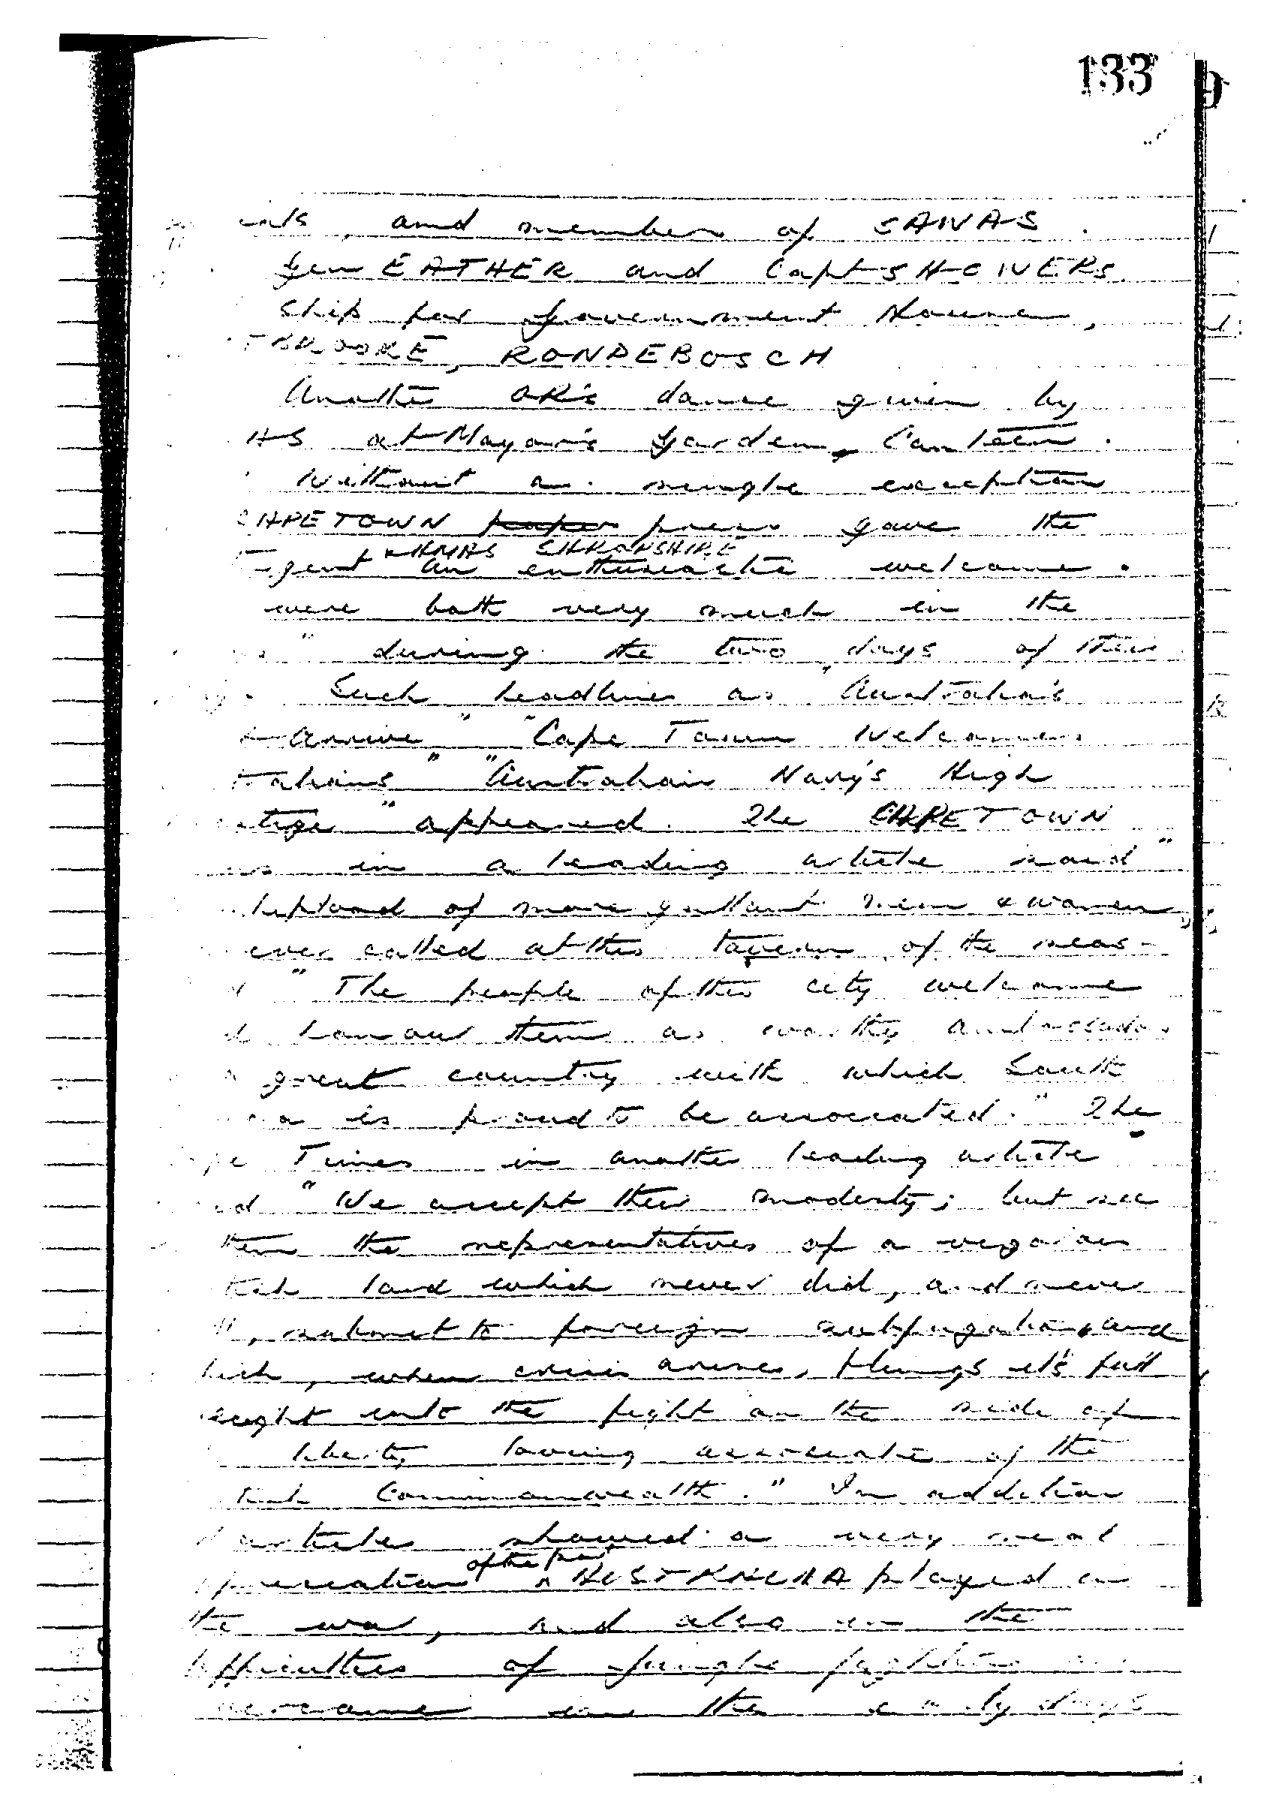 133 9
and member of SAWAS.
Gen EATHER and Capt SHOWERS
ship for Government House,
TBROOKE, RONDEBOSCH
Another OR's dance given by
AS at Mayor's Garden, Canteen.
Without a single exception
CAPETOWN press gave the
gent & HMAS SHROPSHIRE
an enthusiastic welcome.
were both very much in the
" during the two days of their
Such headlines as "Australia's
Arrive" "Cape Town Welcomes
tralians" "Australian Navy's High
tige" appeared. The CAPETOWN
in a leading article said "
shipload of more gallant men & women
ever called at this tavern of the seas-
" The people of this city welcome
honour them as worthy ambassadors
great country with which South
a is proud to be associated." The
pe Times in another leading article
"We accept their modesty; but see
them the representatives of a vigorous
tish land which never did, and never
ll, submit to foreign subjugation, and
hich, when crisis arises, flings it's full
eight into the fight on the side of
liberty loving associate of the
tish Commonwealth." In addition
article showed a very real
preciation of the part AUSTRALIA played in
the war, and also in the
difficulties of jungle fighting
overcame in the early days